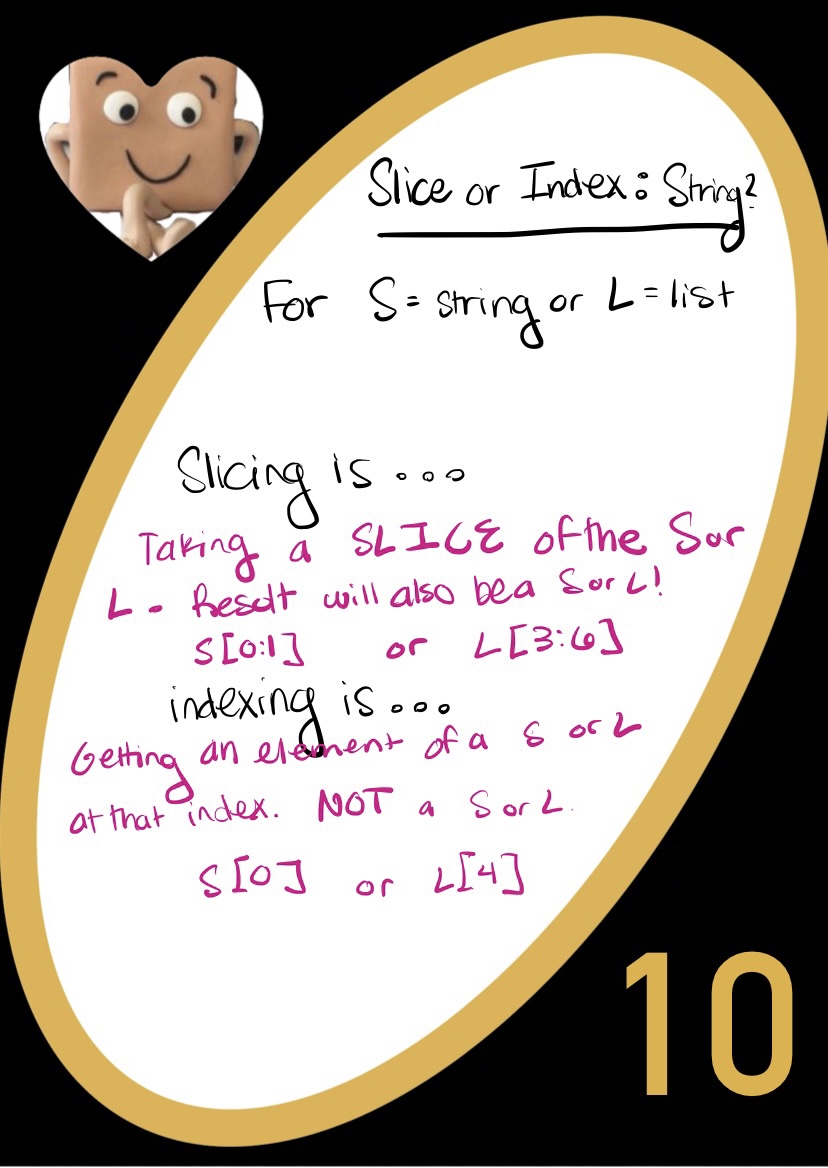 Slice or Index: String?
For S= string or L = list
Slicing is ...
Taking a SLICE of the S or
L - Result will also be a S or L!
S[0:1] or L[3:6]
indexing is ...
Getting an element of a S or L
at that index. NOT a S or L.
S[0] or L[4]
10